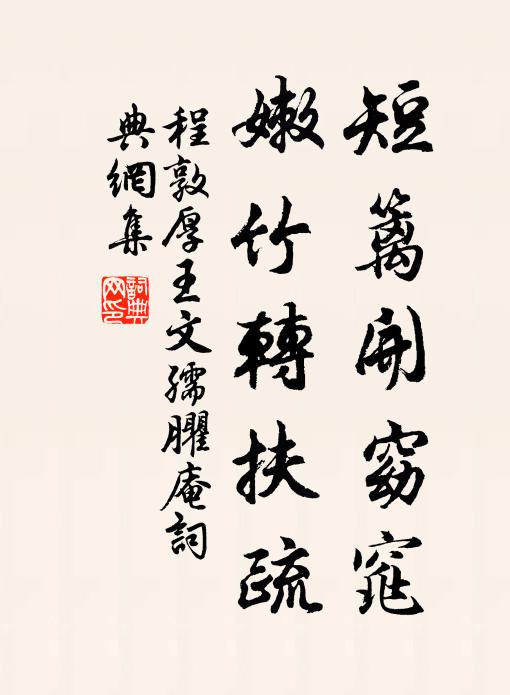 短籬開窈窕
嫩竹轉扶疏
程敦厚王文孺臞庵詞
典網集
詞典网印